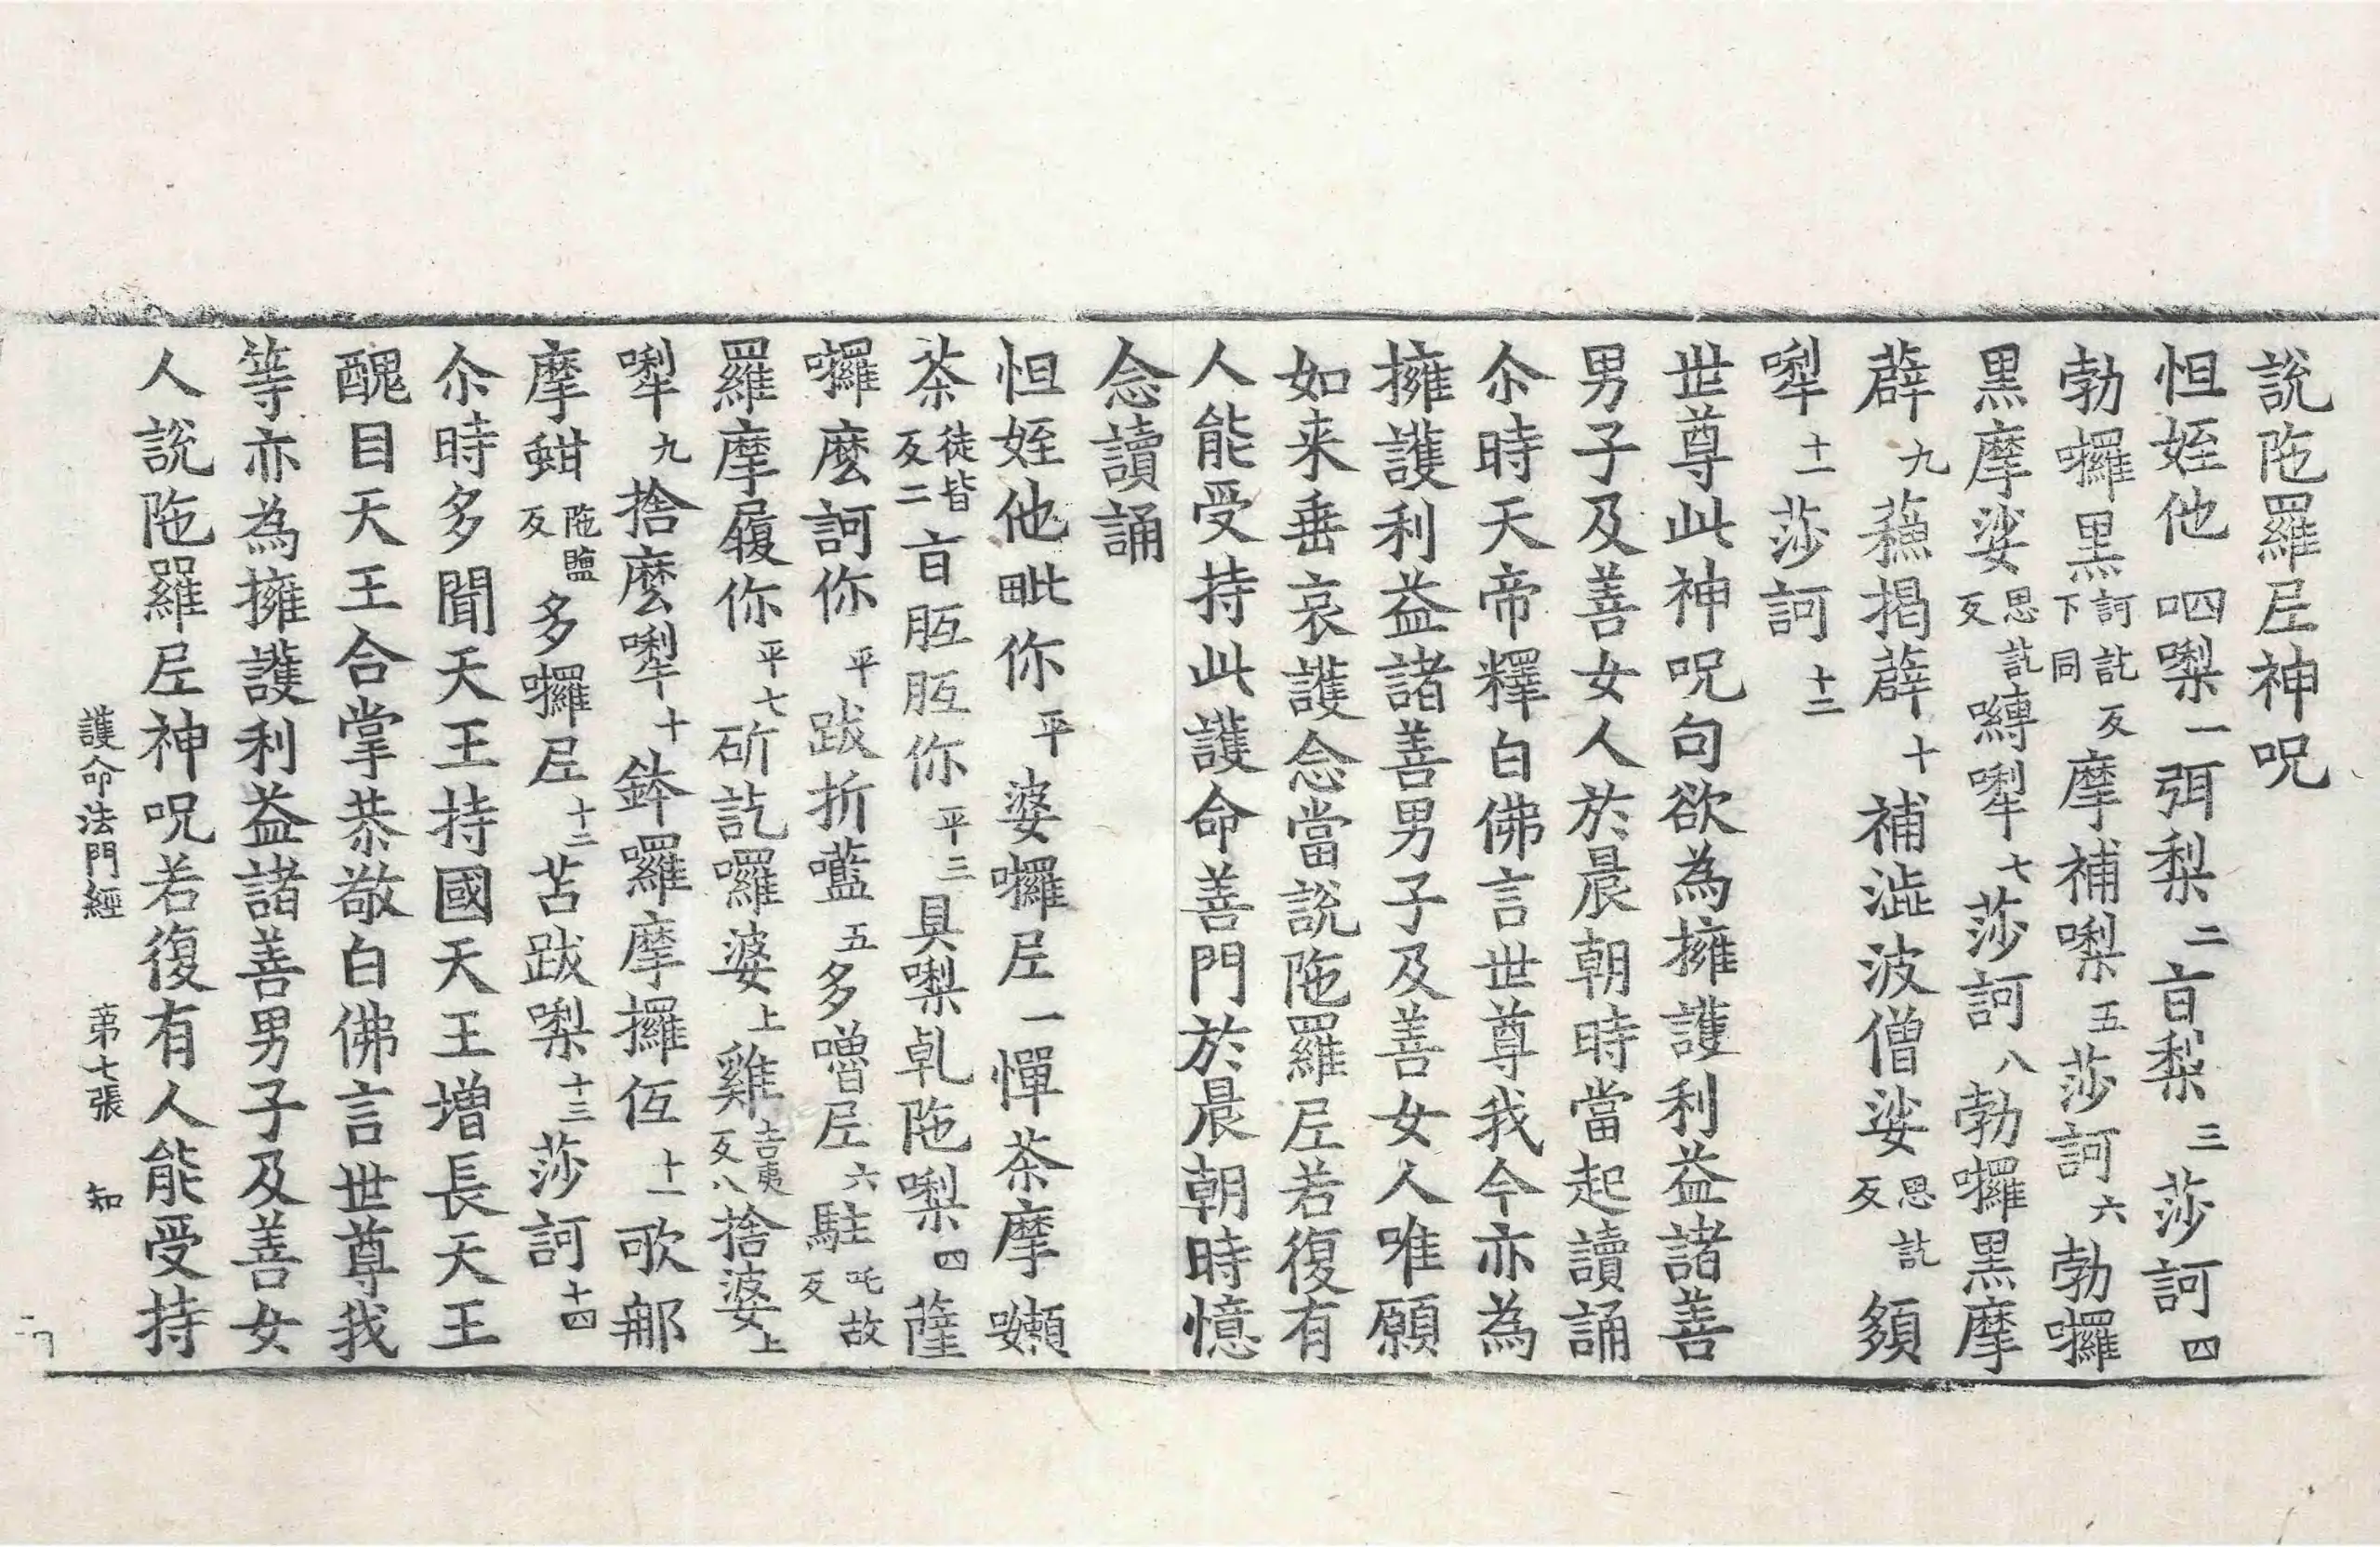 說陁羅𡰱神呪
怛姪他 呬㗚一弭梨二盲梨三莎訶四
勃囉黑訶訖反下同摩補㗚五莎訶六勃囉
黑摩娑思訖反嚩㗚七莎訶八勃囉黑摩
薜九蘓揭薜十補澁波僧娑思訖反頞
㗚十一莎訶十二
世尊此神呪句欲為擁護利益諸善
男子及善女人於晨朝時當起讀誦
尒時天帝釋白佛言世尊我今亦為
擁護利益諸善男子及善女人唯願
如来垂哀護念當說陁羅𡰱若復有
人能受持此護命善門於晨朝時憶
念讀誦
怛姪他毗你平婆囉𡰱一憚茶摩嬾
茶徒皆反二盲胝胝你平三具㗚乹陁㗚四薩
囉麽訶你平跋折㘕五多嚕𡰱六駐吒故反
羅摩履你平七斫訖囉婆上雞吉夷反八捨婆上
㗚九捨麽㗚十鉢囉摩攞㐌十一歌郍
摩蚶陁鹽反多囉𡰱十二苫跋㗚十三莎訶十四
尒時多聞天王持國天王增長天王
醜目天王合掌恭敬白佛言世尊我
等亦為擁護利益諸善男子及善女
人說陁羅𡰱神呪若復有人能受持
護命法門經 第七張 知